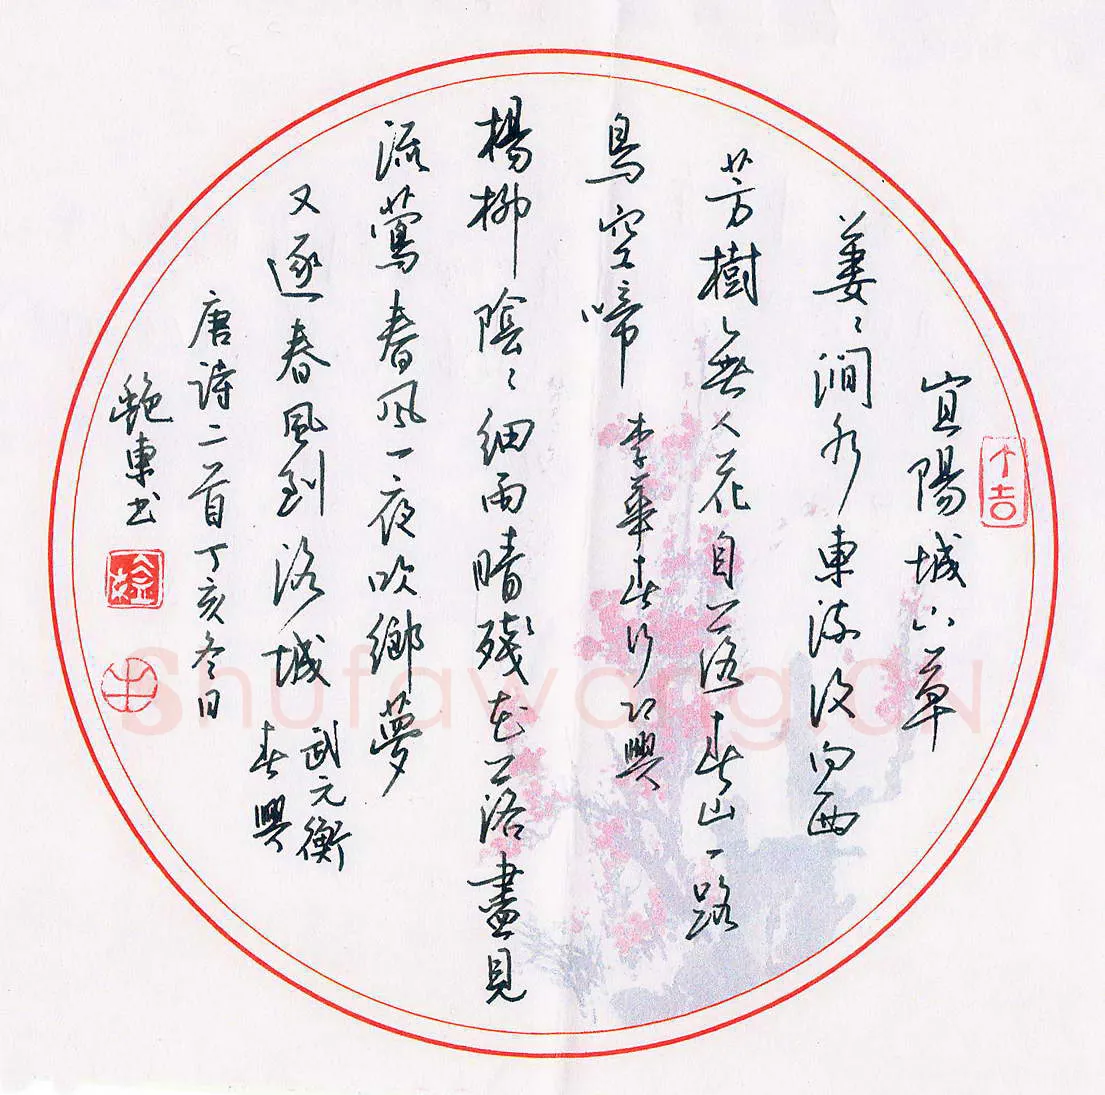 宜陽城下草
萋〻澗水東流復向西
芳樹無人花自落春山一路
鳥空啼 李華春行即興
楊柳陰〻細雨晴殘花落盡見
流鶯春風一夜吹鄉夢
又逐春風到洛城 武元衡
春興
唐詩二首丁亥冬日
鮑東书
大吉
Shufawang.CN